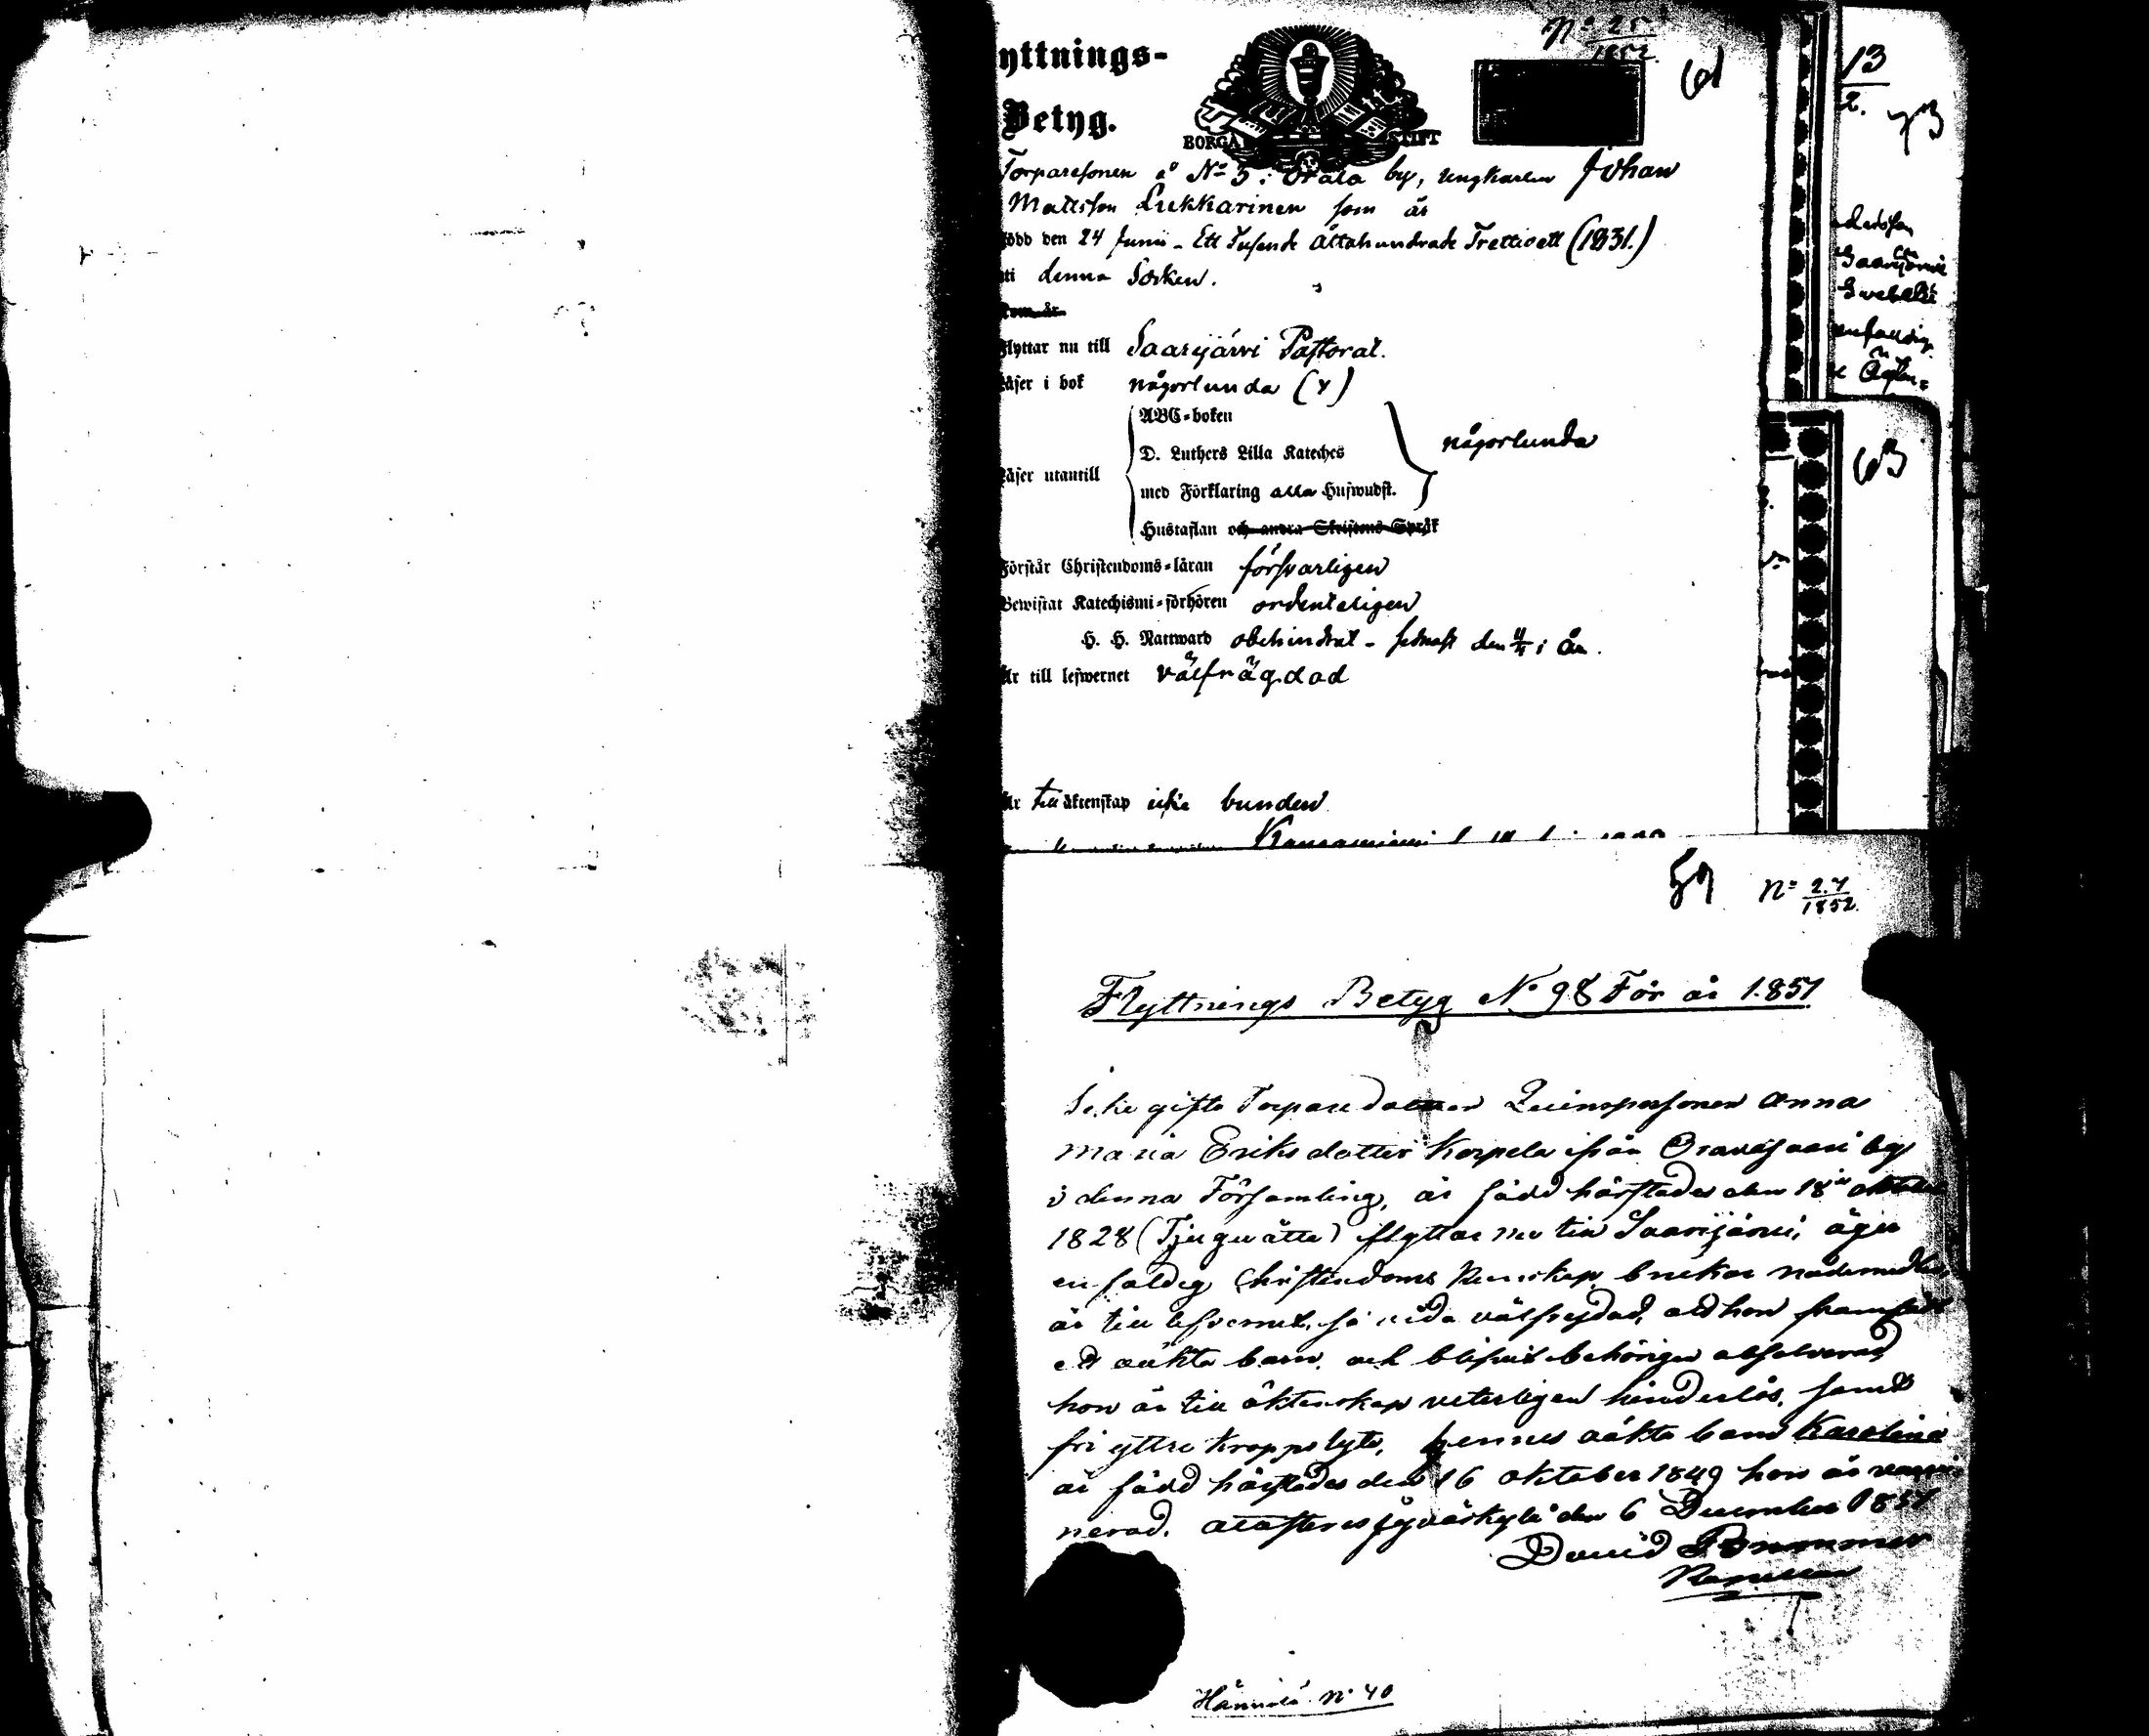 yttnings-
Betyg.
BORGÅ STIFT
No 25
1852.
61
Torparesonen å No 3 i Orala by, ungkarlen Johan
Mattsson Lukkarinen som är
född den 24 Junii - Ett Tusende Åttahundrade Trettioett (1831.)
uti denna Socken.
Som är
Flyttar nu till Saarijärvi Pastorat.
Läser i bok någorlunda (x)
Läser utantill
ABC-boken
D. Luthers Lilla Kateches
med Förklaring alla Hufwudst.
Hustaflan och andra Skriftens Språk
någorlunda
Förstår Christendoms-läran försvarligen
Bewistat Katechismi-förhören ordenteligen
H. H. Nattward obehindrat - sednast den i år.
Är till lefwernet välfrägdad
Är till äktenskap icke bunden
13
2.
73
Saarijärvi
enfaldig
63
59
No 27
1852.
Flyttnings Betyg No 98 För år 1851
Icke gifta Torparedottren Quinspersonen Anna
Maria Eriksdotter Korpela ifrån Oravasaari by
i denna Församling, är född härstädes den 18de oktober
1828 (Tjuguåtta) flyttar nu till Saarijärvi, äger
enfaldig Christendoms Kunskap, brukar nådemedlen,
är till lefvernet så vida välfrejdad, att hon framfödt
ett oäkta barn, och blifvit behörigen absolverad,
hon är till äktenskap veterligen hinderlös, samt
fri yttre kroppslyte, hennes oäkta barn Karolina
är född härstädes den 16 oktober 1849 hon är vacci-
nerad. Attesteres Jyväskylä den 6 December 1851
David Bommer
Hännilä No 40